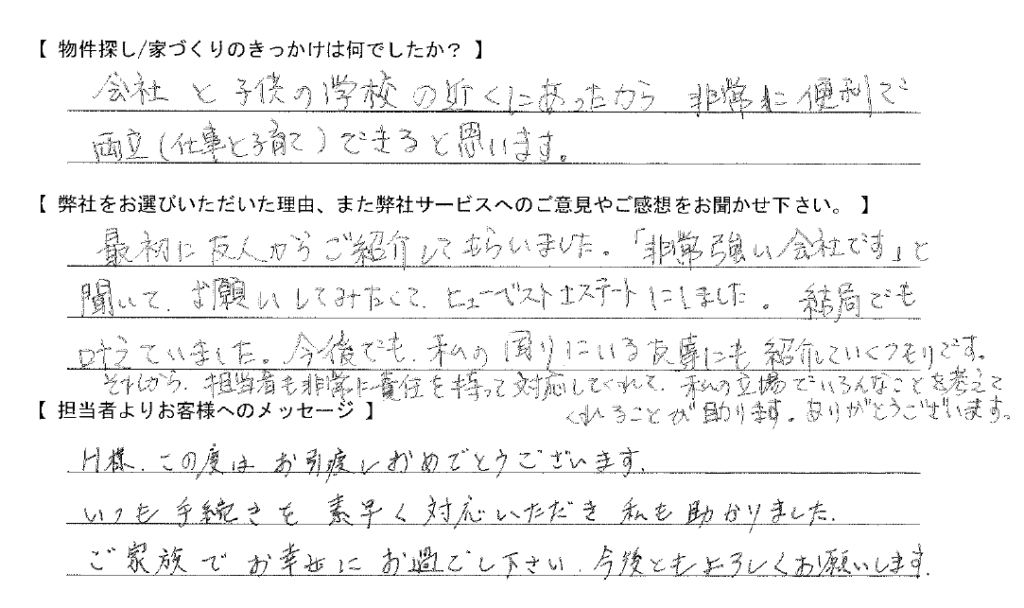 【 物件探し/家づくりのきっかけは何でしたか？ 】
会社と子供の学校の近くにあったから 非常に便利で
両立(仕事と子育て)できると思います。
【 弊社をお選びいただいた理由、また弊社サービスへのご意見やご感想をお聞かせ下さい。 】
最初に友人からご紹介してもらいました。「非常強い会社です」と
聞いて、お願いしてみたくて、ヒューベストエステートにしました。結局でも
叶えていました。今後でも、私の周りにいる友達にも紹介していくつもりです。
それから、担当者も非常に責任を持って対応してくれて、私の立場でいろんなことを考えて
くれることが助ります。ありがとうございます。
【 担当者よりお客様へのメッセージ 】
H様、この度はお引渡しおめでとうございます。
いつも手続きを素早く対応いただき私も助かりました。
ご家族でお幸せにお過ごし下さい。今後ともよろしくお願いします。